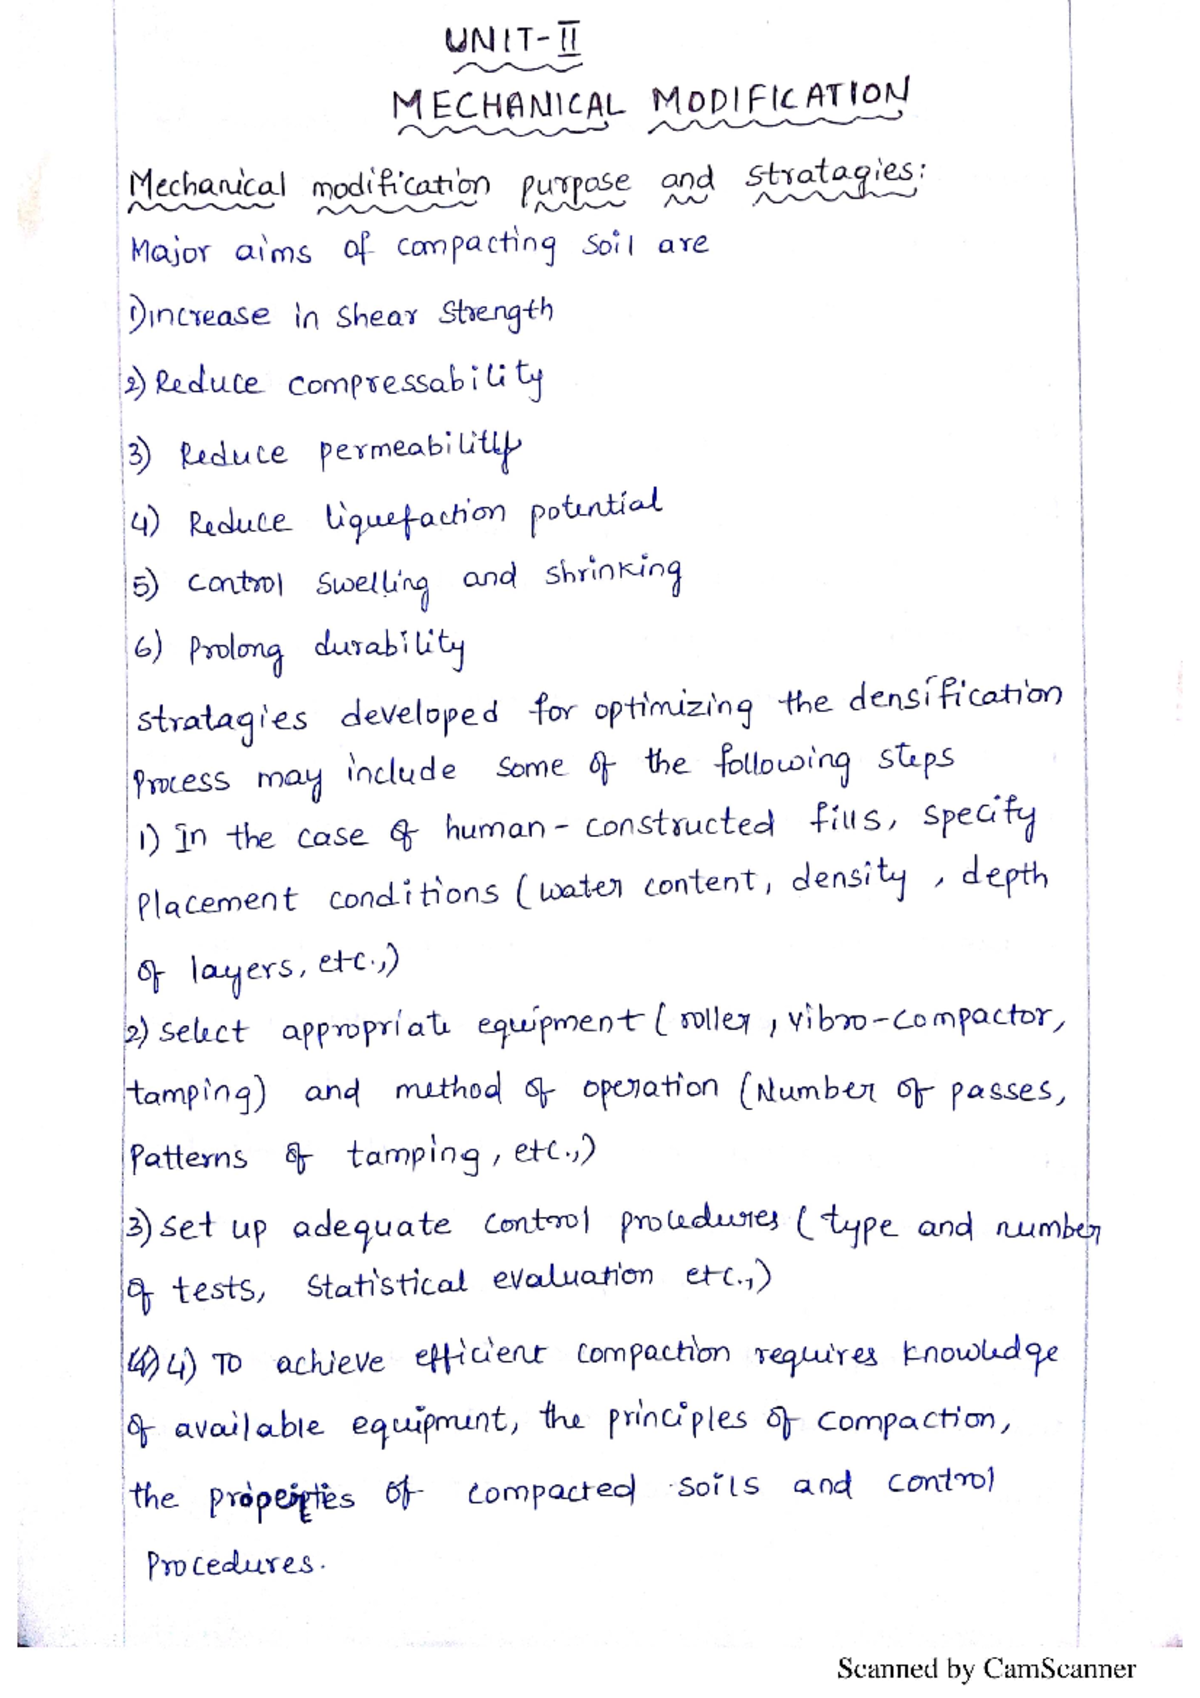 UNIT-II
MECHANICAL MODIFICATION
Mechanical modification purpose and stratagies:
Major aims of compacting soil are
1) increase in shear strength
2) Reduce compressability
3) Reduce permeability
4) Reduce liquefaction potential
5) control swelling and shrinking
6) Prolong durability
stratagies developed for optimizing the densification
Process may include some of the following steps
1) In the case of human-constructed fills, specify
Placement conditions (water content, density, depth
of layers, etc.,)
2) select appropriate equipment (roller, vibro-compactor,
tamping) and method of operation (Number of passes,
Patterns of tamping, etc.,)
3) set up adequate control procedures (type and number
of tests, statistical evaluation etc.,)
4) To achieve efficient compaction requires knowledge
of available equipment, the principles of compaction,
the properties of compacted soils and control
Procedures.
Scanned by CamScanner